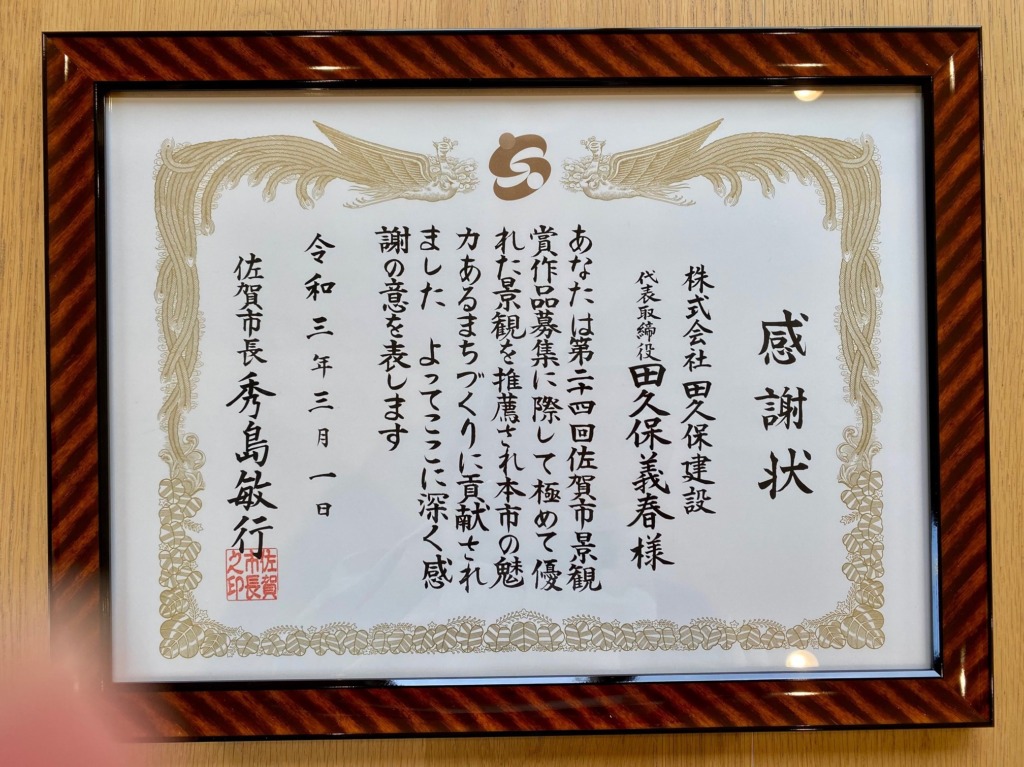 感謝状
株式会社 田久保建設
代表取締役 田久保義春様
あなたは第二十四回佐賀市景観
賞作品募集に際して極めて優
れた景観を推薦され本市の魅
力あるまちづくりに貢献され
ました よってここに深く感
謝の意を表します
令和三年三月一日
佐賀市長 秀島敏行
佐賀
市長
之印